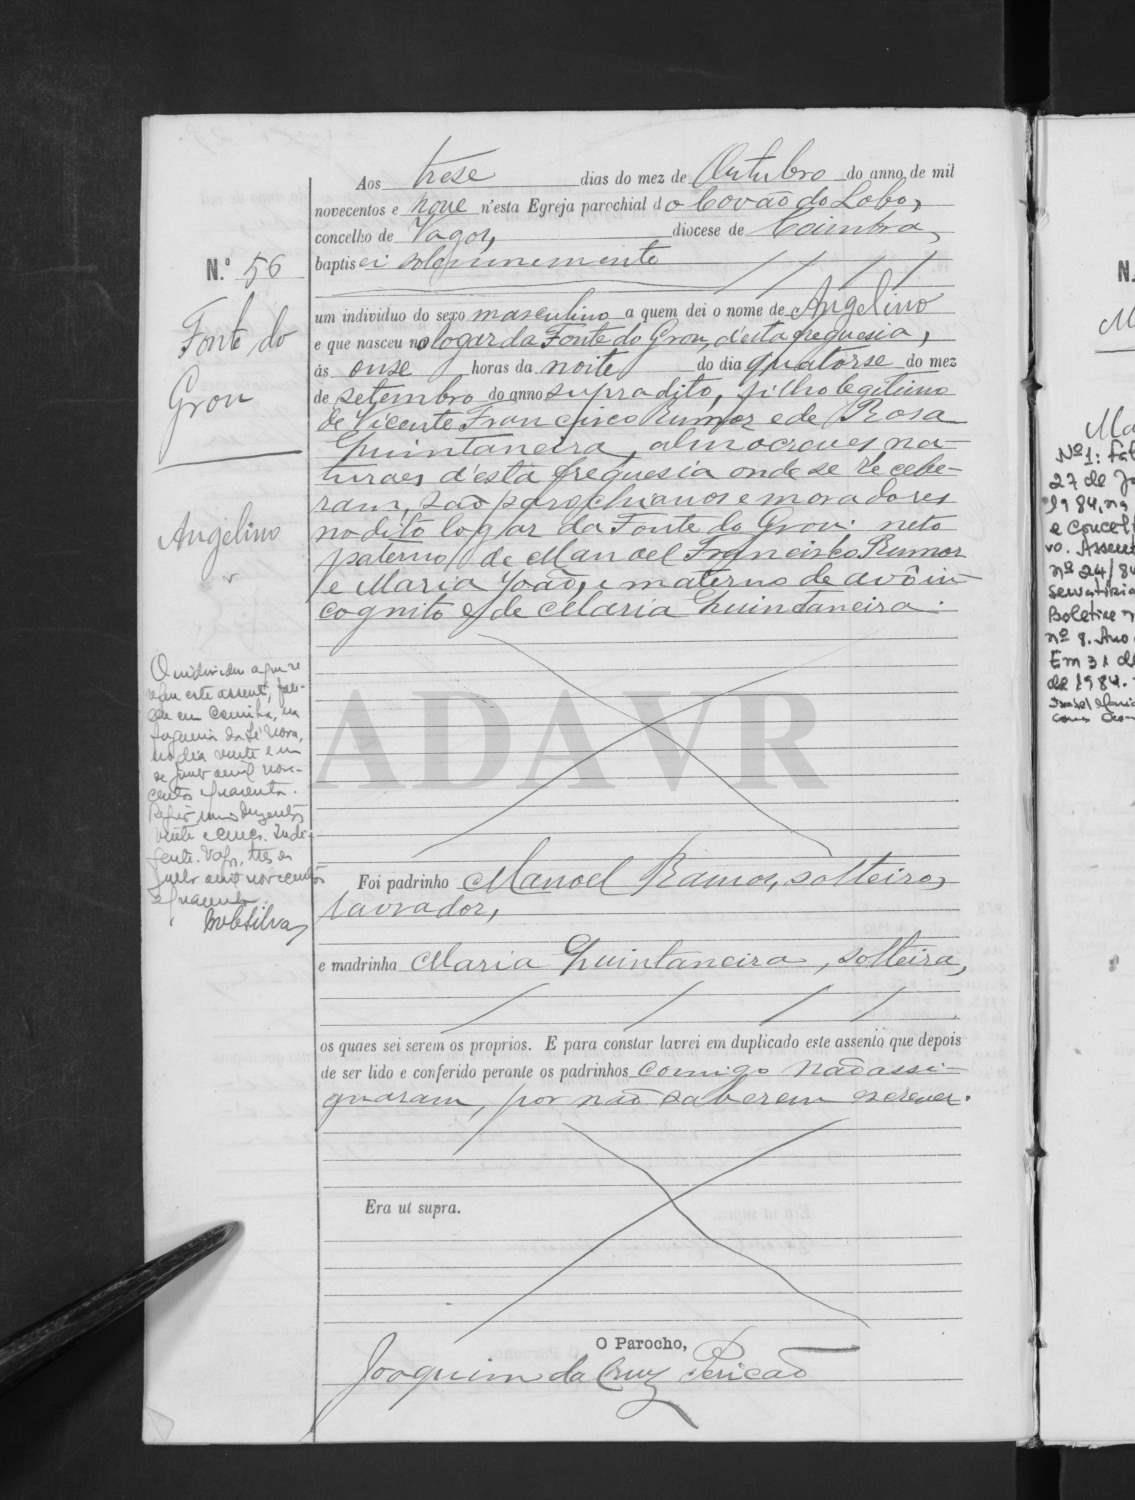 Aos trese dias do mez de Outubro do anno de mil
novecentos e nove n'esta Egreja parochial do Covão do Lobo,
concelho de Vagos, diocese de Coimbra,
baptisei solemnemente
N.º 56
Fonte do
Grou
Angelino
um individuo do sexo masculino a quem dei o nome de Angelino
e que nasceu no logar da Fonte do Grou, d'esta freguesia,
ás onse horas da noite do dia quatorse do mez
de setembro do anno supradito, filho legitimo
de Vicente Francisco Rumor e de Rosa
Quintaneira, almocreves na-
turaes d'esta freguesia onde se recebe-
ram, são parochianos e moradores
no dito logar da Fonte do Grou: neto
paterno de Manoel Francisco Rumor
e Maria João, e materno de avô in-
cognito e de Maria Quintaneira.
O individuo a que se
refere este assento, fale-
ceu em Coimbra, na
freguesia da Sé Nova,
no dia vinte e um
de mil nove-
centos e quarenta.
Registo numero duzentos
vinte e cinco.
Vagos, tres de
mil novecentos
e quarenta.
ADAVR
Foi padrinho Manoel Ramos, solteiro,
lavrador,
e madrinha Maria Quintaneira, solteira,
os quaes sei serem os proprios. E para constar lavrei em duplicado este assento que depois
de ser lido e conferido perante os padrinhos comigo não assi-
gnaram, por não saberem escrever.
Era ut supra.
O Parocho,
Joaquim da Cruz Pericão
N.
Nº1:
27 de
1984, na
e Concel
vo. Assent
nº 24/84
Boletim n
nº 8. Ano
Em 31 de
de 1984.